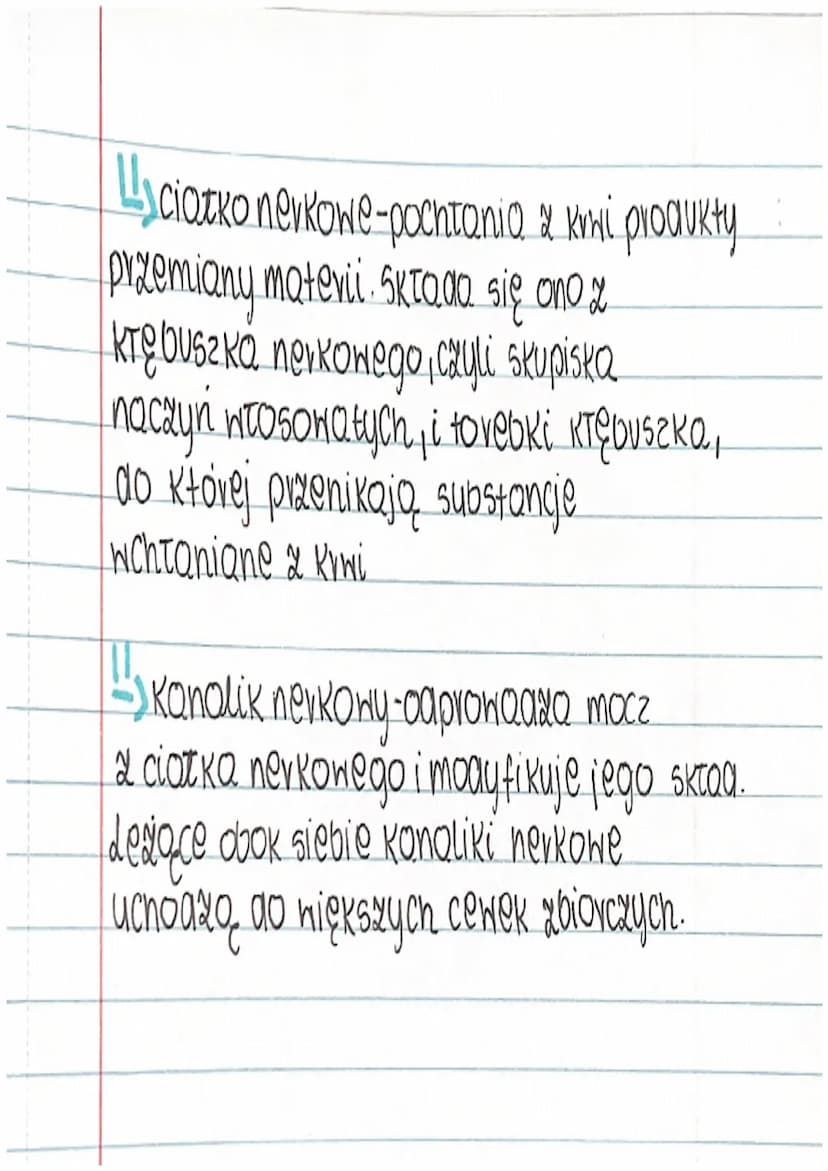 ciałko nerkowe-pochłania z krwi produkty
przemiany materii. Składa się ono z
kłębuszka nerkowego, czyli skupiska
naczyń włosowatych, i torebki kłębuszka,
do której przenikają substancje
wchłaniane z krwi
kanalik nerkowy-odprowadza mocz
z ciałka nerkowego i modyfikuje jego skład.
Leżące obok siebie kanaliki nerkowe
uchodzą do większych cewek zbiorczych.